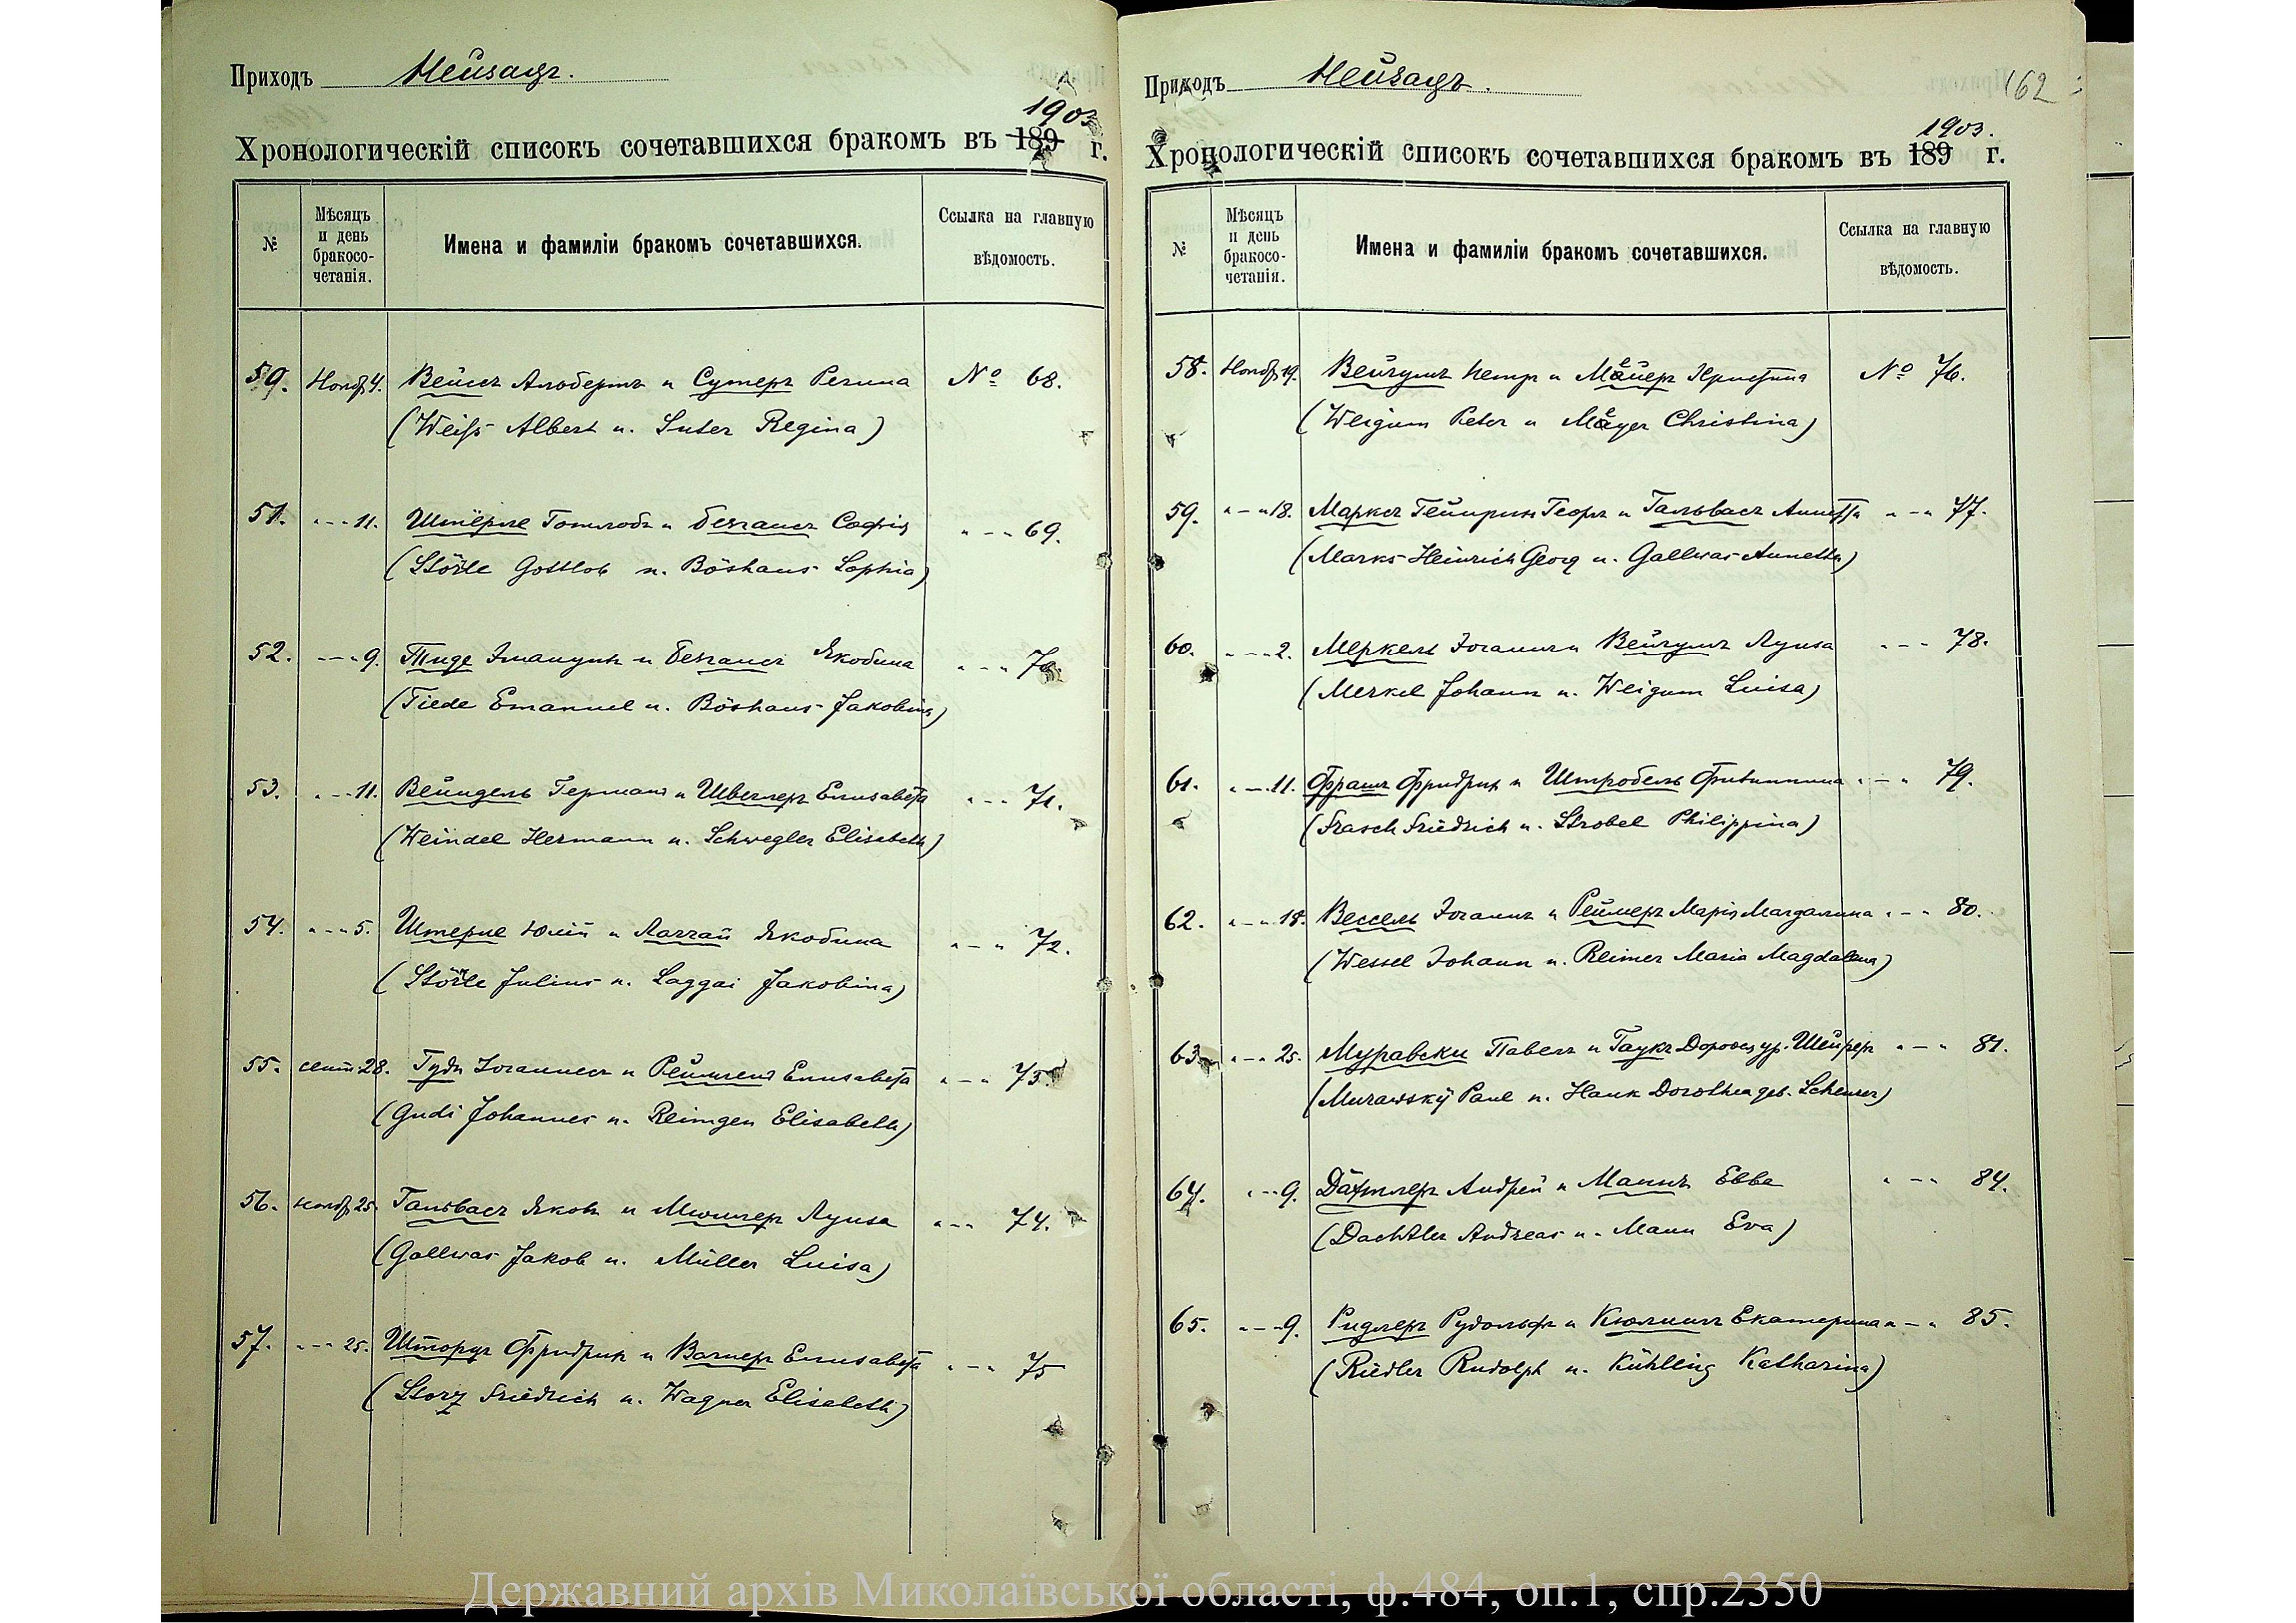 Приходъ Нейзацъ.
1903
Хронологическій списокъ сочетавшихся бракомъ въ 189 г.
№
Мѣсяцъ и день бракосо-четанія.
Имена и фамиліи бракомъ сочетавшихся.
Ссылка на главную вѣдомость.
50. Нояб. 4. Вейсъ Альбертъ и Сутеръ Регина № 68.
(Weiß Albert u. Suter Regina)
51. " - - 11. Штёрле Готлобъ и Безгаусъ Софія " - - 69.
(Störle Gottlob u. Böshaus Sophia)
52. - - " 9. Тиде Эмануилъ и Безгаусъ Якобина " - - 70.
(Tiede Emanuel u. Böshaus Jakobina)
53. " - - 11. Вейндель Германъ и Швеглеръ Елисавета " - - 71.
(Weindel Hermann u. Schwegler Elisabeth)
54. " - - 5. Штерле Юлій и Лаггай Якобина " - " 72.
(Störle Julius u. Laggai Jakobina)
55. сент. 28. Гуди Іоганнесъ и Реймгенъ Елисавета " - " 73.
(Gudi Johannes u. Reimgen Elisabeth)
56. нояб. 25. Гальвасъ Яковъ и Мюллеръ Луиза " - - 74.
(Gallwas Jakob u. Müller Luisa)
57. " - - 25. Шторцъ Фридрихъ и Вагнеръ Елисавета " - " 75
(Storz Friedrich u. Wagner Elisabeth)
Приходъ Нейзацъ.
162
1903.
Хронологическій списокъ сочетавшихся бракомъ въ 189 г.
№
Мѣсяцъ и день бракосо-четанія.
Имена и фамиліи бракомъ сочетавшихся.
Ссылка на главную вѣдомость.
58. Нояб. 19. Вейгумъ Петръ и Мейеръ Христина № 76.
(Weigum Peter u Meyer Christina)
59. " - " 18. Марксъ Гейнрихъ Георгъ и Гальвасъ Аннетта " - " 77.
(Marks Heinrich Georg u. Gallwas Annetta)
60. " - - 2. Меркель Іоганнъ и Вейгумъ Луиза " - - 78.
(Merkel Johann u. Weigum Luisa)
61. " - . 11. Фрашъ Фридрихъ и Штробель Филиппина " - " 79.
(Frasch Friedrich u. Strobel Philippina)
62. " - " 18. Вессель Іоганнъ и Реймеръ Марія Магдалина " - " 80.
(Wessel Johann u. Reimer Maria Magdalena)
63. " - " 25. Муравски Павелъ и Гаукъ Доротея ур. Шейреръ " - " 81.
(Murawský Paul u. Hauk Dorothea geb. Scheurer)
64. " - - 9. Дахтлеръ Андрей и Маннъ Евва " - " 84.
(Dachtler Andreas u. Mann Eva)
65. " - - 9. Ридлеръ Рудольфъ и Кюлингъ Екатерина " - " 85.
(Riedler Rudolph u. Kühling Katharina)
Державний архів Миколаївської області, ф.484, оп.1, спр.2350